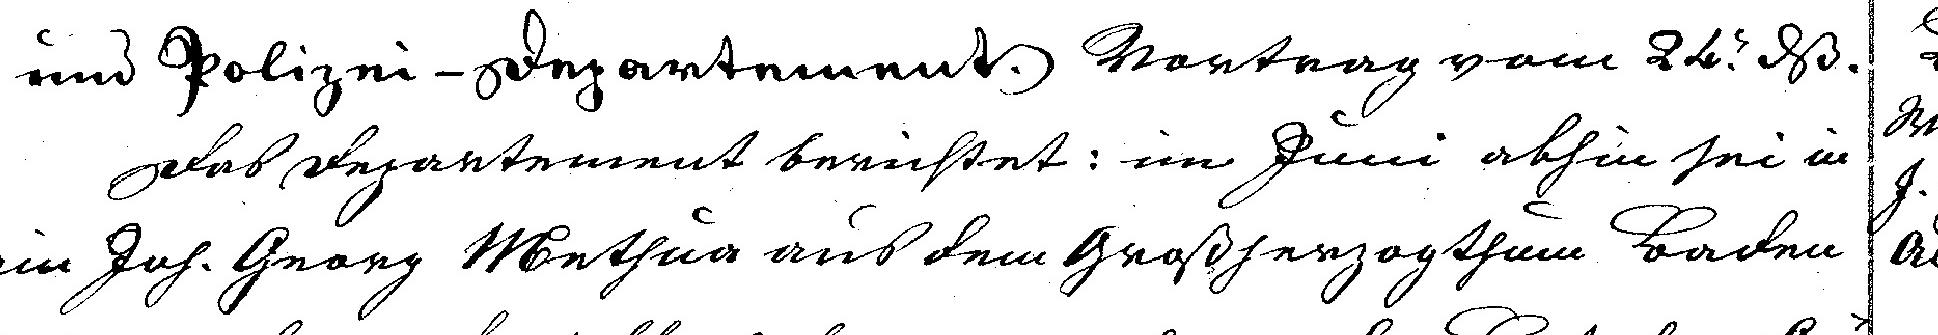 und Polizei-Departement.) Vortrag vom 24. dß.
Das Departement berichtet: im Juni abhin sei in
ein Joh. Georg Methua aus dem Großherzogthum Baden